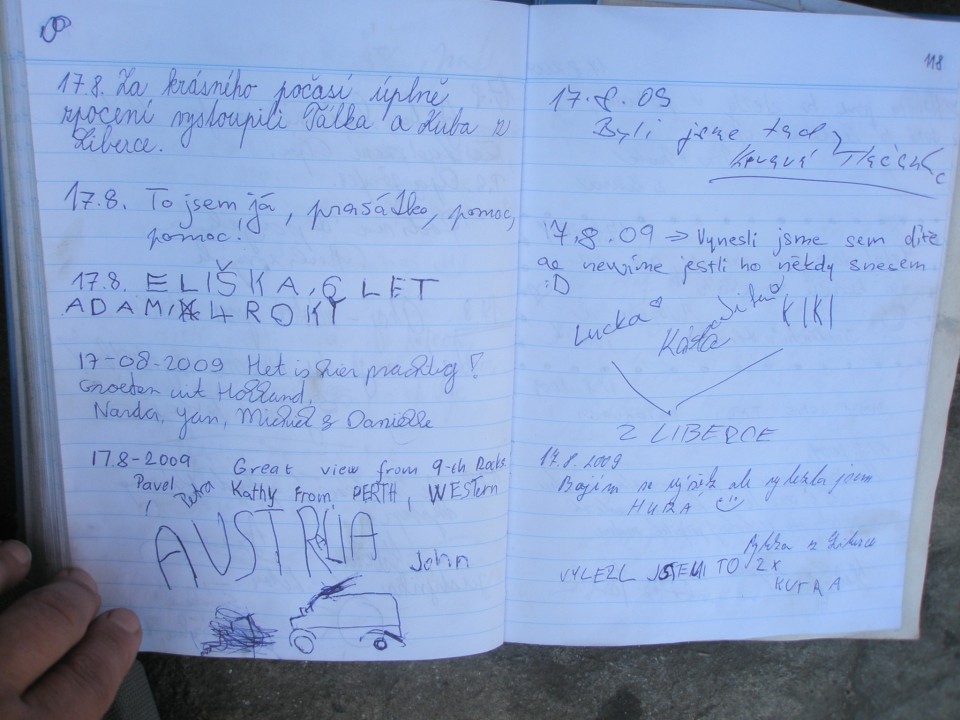 17.8. Za krásného počasí úplně
zpocení vystoupili Tálka a Kuba z
Liberce.
17.8. To jsem já, prasátko, pomoc,
pomoc!
17.8. ELIŠKA, 6 LET
ADAM, 4 ROKY
17-08-2009 Het is hier prachtig!
Groeten uit Holland,
Narda, Jan, Michiel & Danielle
17.8-2009 Great view from 9-th Rocks
Pavel Petra Kathy From PERTH, WESTERN
AUSTRALIA John
118
17.8.09
Byli jsme tad
17.8.09 ⇒ Vynesli jsme sem dítě
ae nevíme jestli ho někdy snesem
:D
Lucka Jitka KIKI
Kása
Z LIBERCE
17.8.2009
Bojím se výšek ale vylezla jsem
HURA
z Liberce
VYLEZL JSEM TO 2X